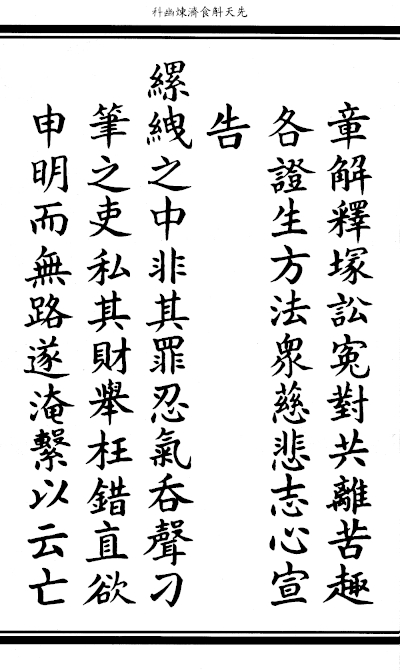 科幽煉濟食斛天先
章解釋塚訟冤對共離苦趣
各證生方法衆慈悲志心宣
告
縲絏之中非其罪忍氣吞聲刁
筆之吏私其財舉枉錯直欲
申明而無路遂淹繫以云亡